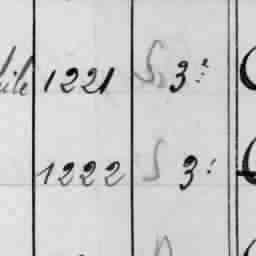 1221 S 3:
1222 S 3: